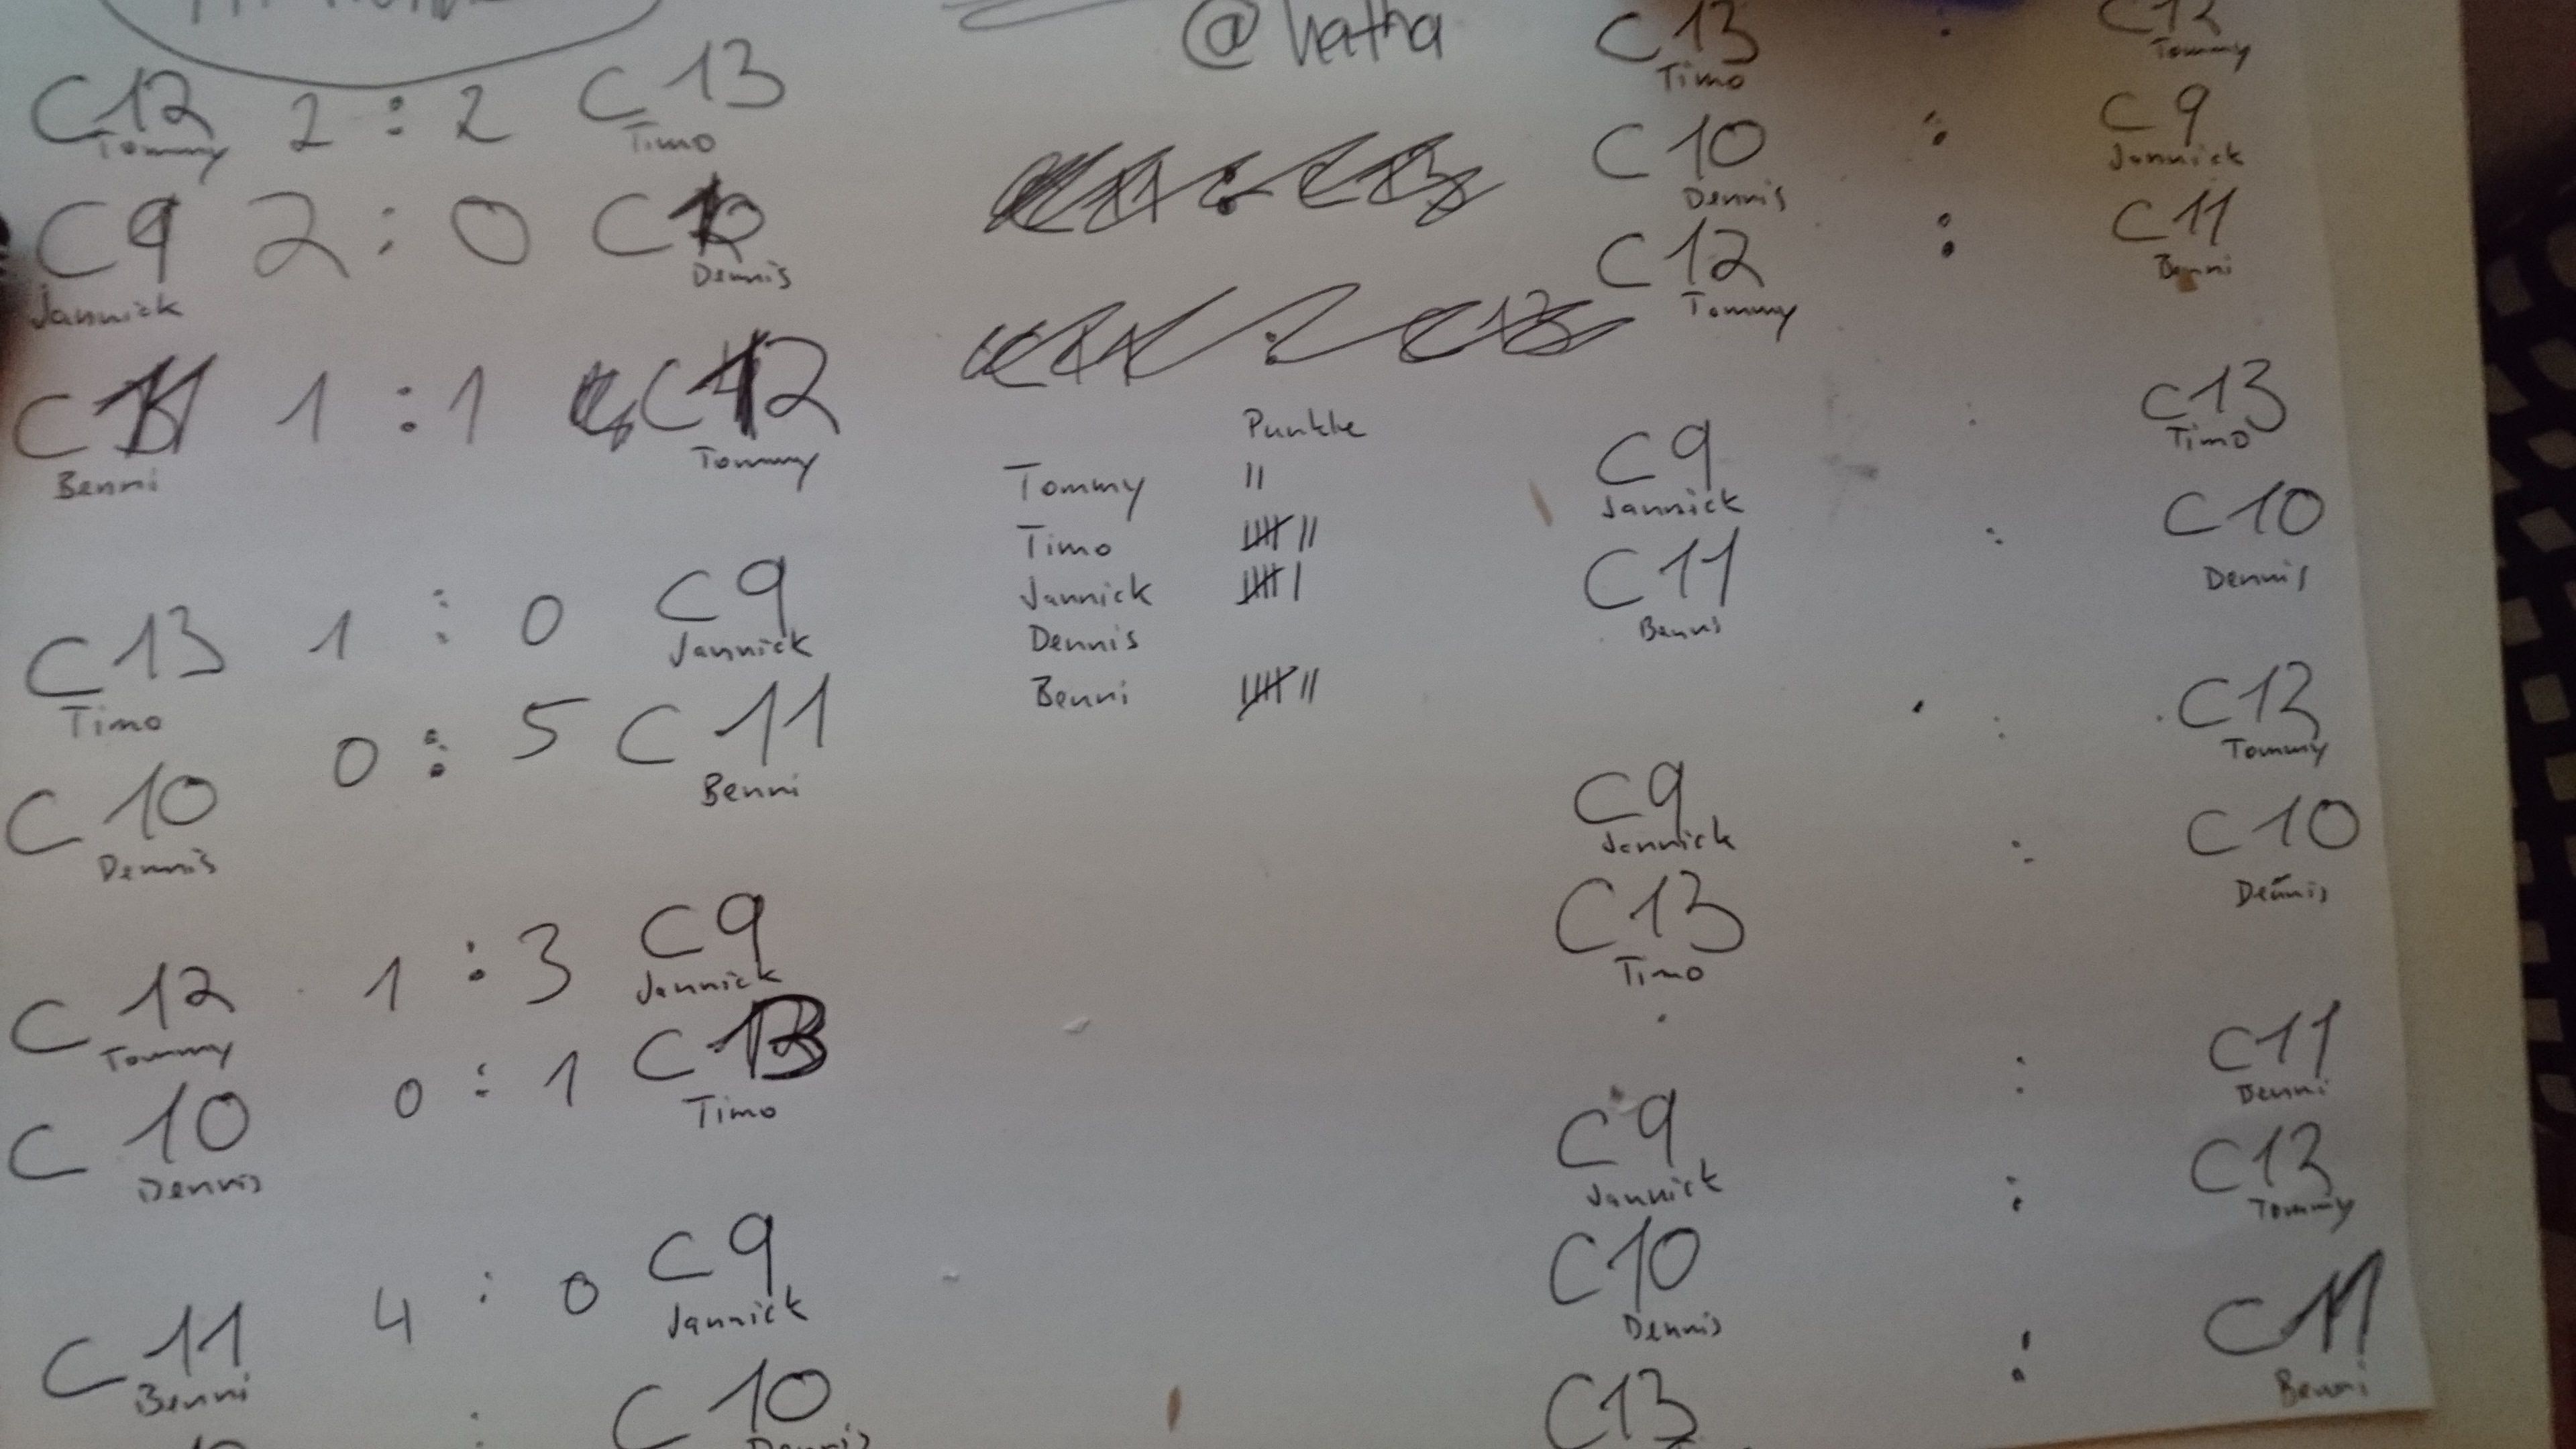 @ hatha
C12 2 : 2 C13
Tommy Timo
C9 2 : 0 C10
Jannick Dennis
C11 1 : 1 C12
Benni Tommy
C13 1 : 0 C9
Timo Jannick
C10 0 : 5 C11
Dennis Benni
C12 1 : 3 C9
Tommy Jannick
C10 0 : 1 C13
Dennis Timo
C11 4 : 0 C9
Benni Jannick
: C10
Dennis
Punkte
Tommy II
Timo IIIII II
Jannick IIIII I
Dennis
Benni IIIII II
C13 : C12
Timo Tommy
C10 : C9
Dennis Jannick
C12 : C11
Tommy Benni
C9 : C13
Jannick Timo
C11 : C10
Benni Dennis
C9 : C12
Jannick Tommy
C13 : C10
Timo Dennis
C9 : C11
Jannick Benni
C10 : C12
Dennis Tommy
C13 : C11
Benni